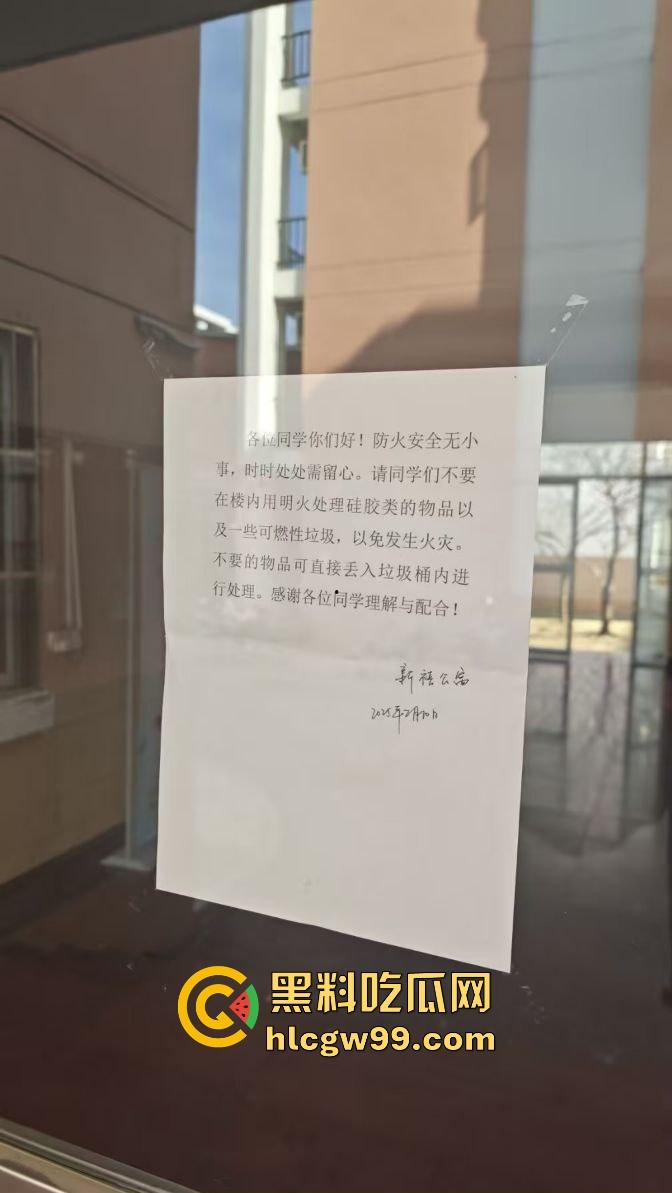 各位同学你们好！防火安全无小
事，时时处处需留心。请同学们不要
在楼内用明火处理硅胶类的物品以
及一些可燃性垃圾，以免发生火灾。
不要的物品可直接丢入垃圾桶内进
行处理。感谢各位同学理解与配合！
新禧公寓
2025年2月20日
黑料吃瓜网
hlcgw99.com